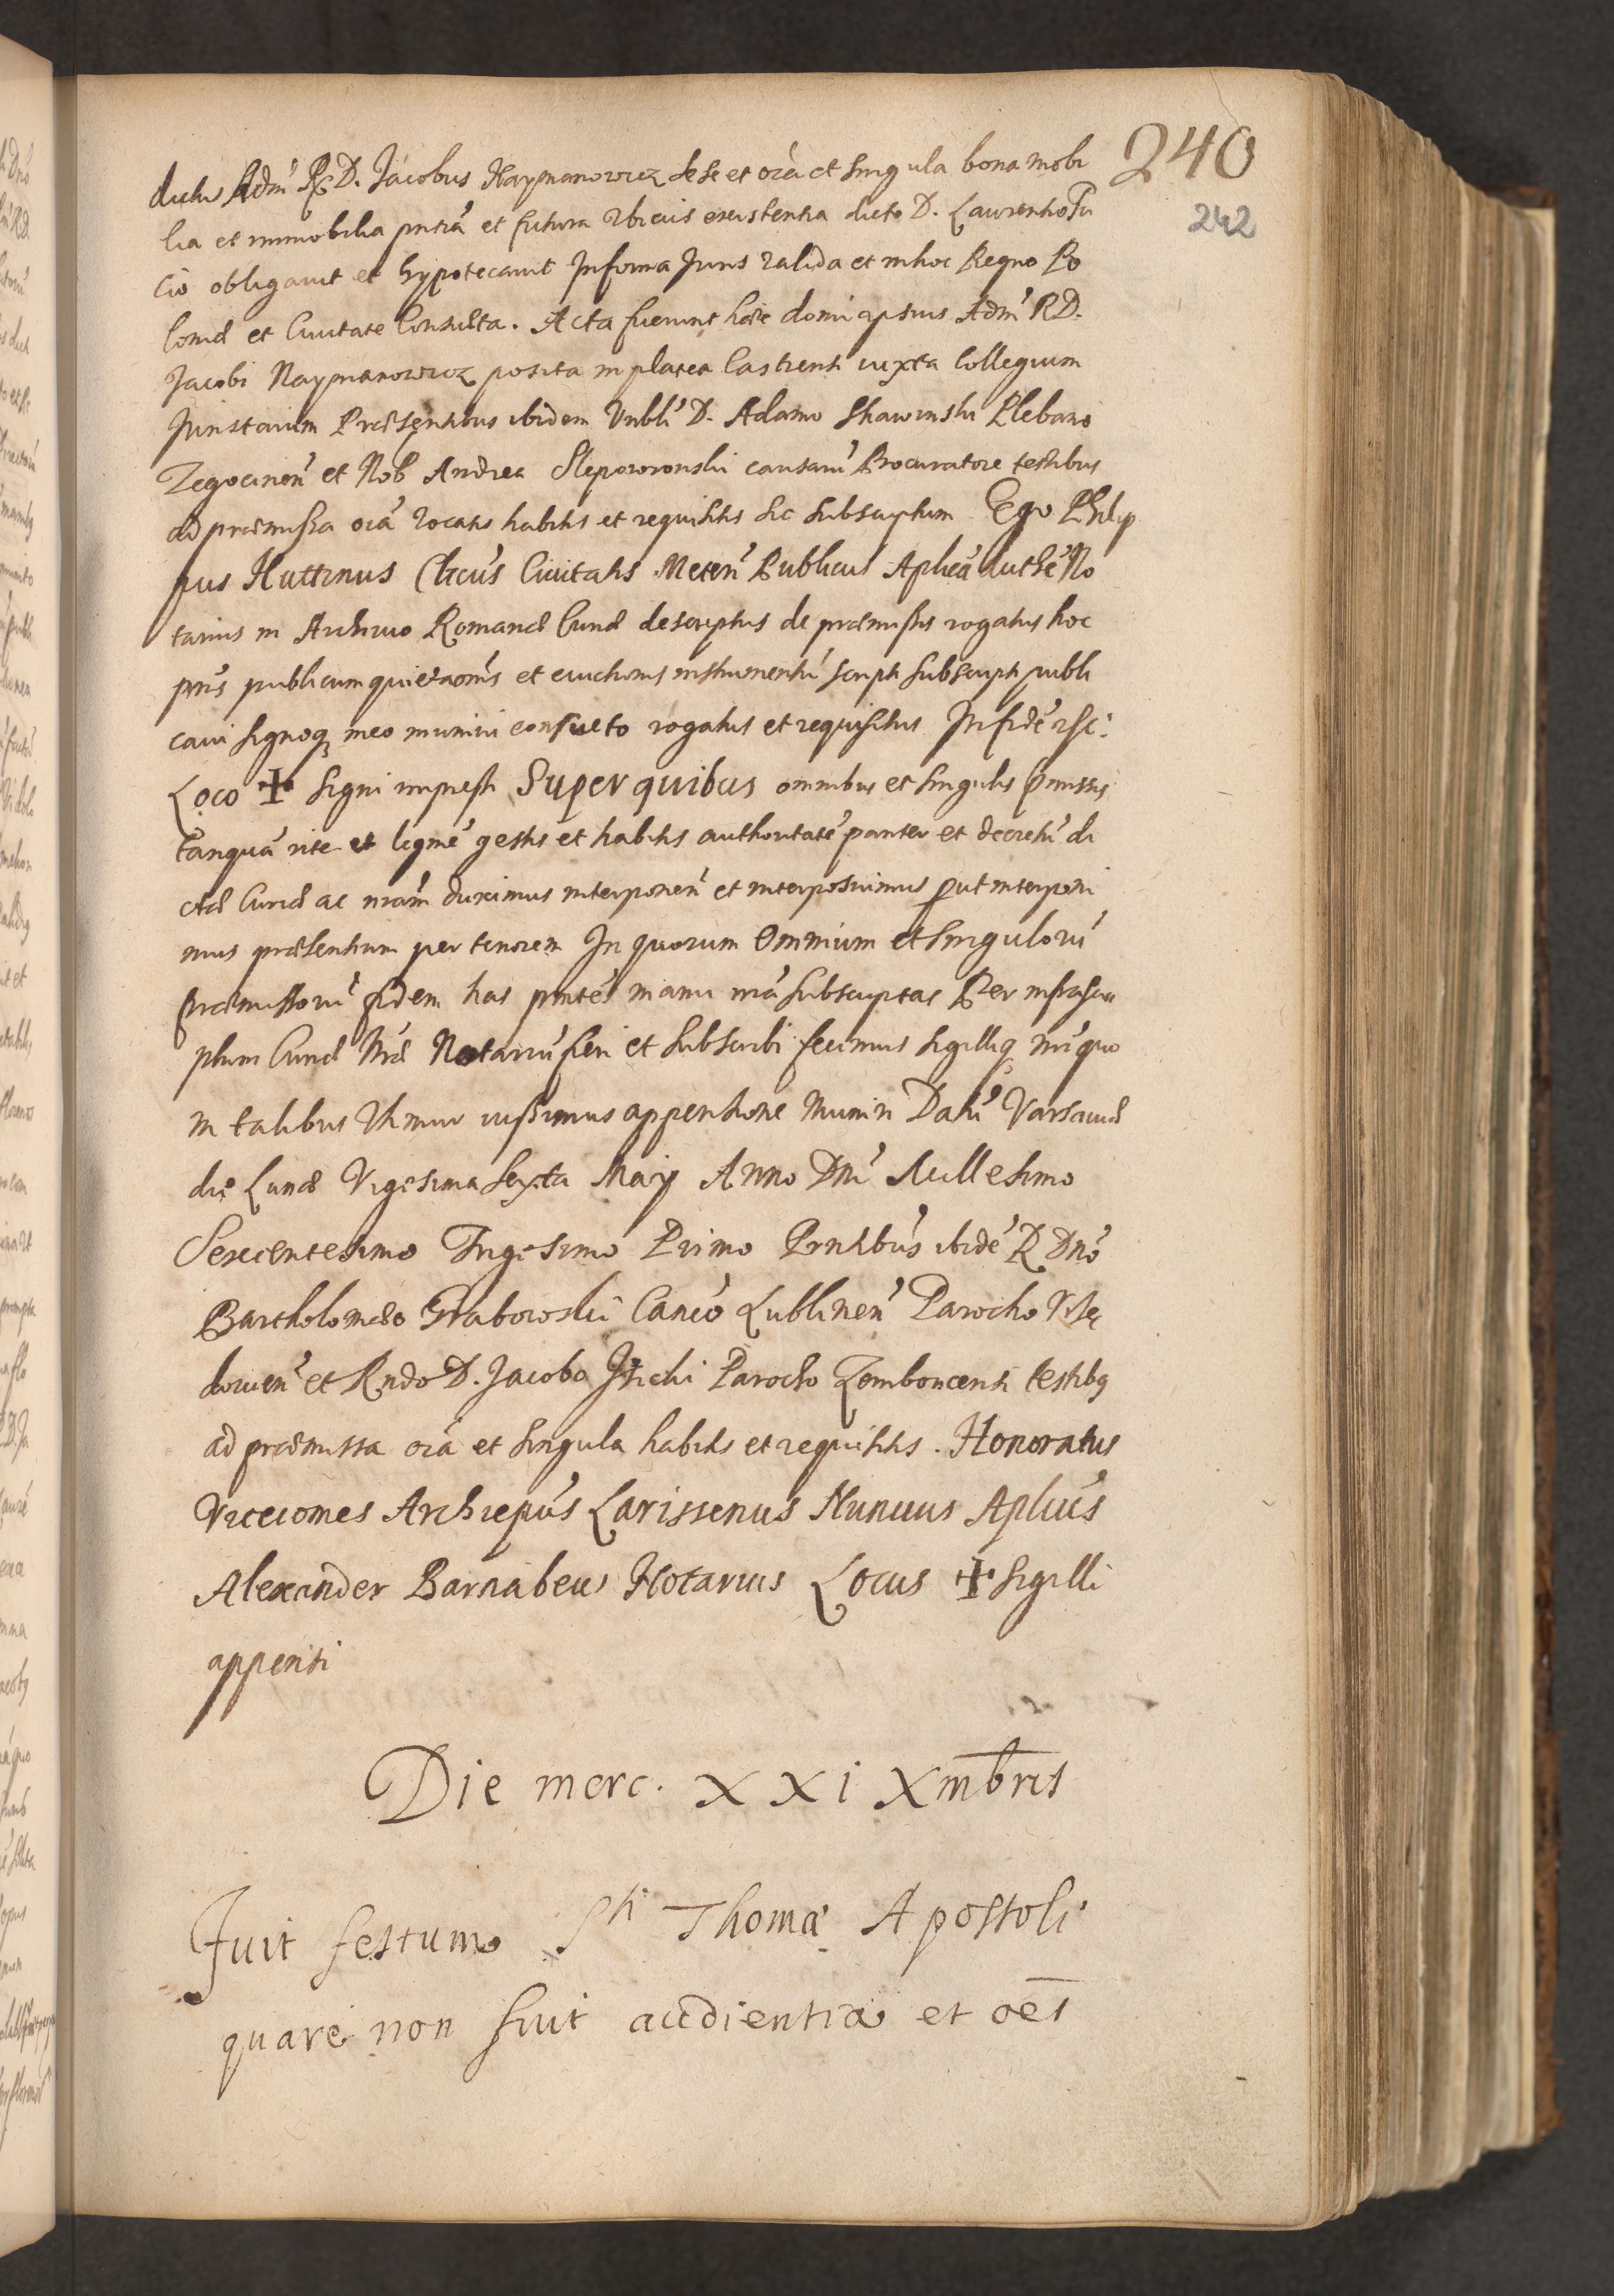 240
242
dictus Adm̃ R. D. Jacobus Naymanowicz sese et oĩa et singula bona mobi
lia et immobilia pñtia et futura vbicũis existentia dicto D. Laurentio Tu
cio obligauit et hypotecauit In forma Juris valida et in hoc Regno Po
loniæ et Ciuitate Consueta. Acta fuerunt hæc domi ipsius Adm̃ RD.
Jacobi Naymanowicz posita in platea Castrensi iuxta Collegium
Juristarum Præsentibus ibidem Vnbli D. Adamo Skawinski Plebano
Zegocineñ et Nob Andrea Sleporowonski causarũ Procuratore testibus
ad præmissa oĩa vocatis habitis et requisitis sic subscriptum Ego Philip
pus Huttinus Clicũs Ciuitatis Meteñ Publicus Aplicã Authẽ No
tarius in Archiuo Romanæ Curiæ descriptus de præmissis rogatus hoc
pñs publicum quietaõnis et euictionis instrumentũ scripsi subscripsi publi
caui signoq meo muniui consueto rogatus et requisitus In fidẽ etc:
Loco ✠ signi impressi Super quibus omnibus et singulis pmissis
tanquã rite et legmẽ gestis et habitis authoritatẽ pariter et decretũ di
ctæ Curiæ ac nr̃am duximus interponeñ et interposuimus put interponi
mus præsentium per tenorem In quorum Omnium et Singulorũ
præmissorũ fidem has pñtes manu nr̃a subscriptas Per infrascri
ptum Curiæ Nr̃æ Notariũ fieri et subscribi fecimus sigilliq nr̃i quo
in talibus Vtimur iussimus appensione muniri Datũ Varsauiæ
die Lunæ Vigesima sexta Maij Anno Dñi Millesimo
Sexcentesimo Trigesimo Primo Pñtibũs ibidẽ R Dnõ
Bartholomæo Grabowski Canćo Lublineñ Parocho Vise
kowieñ et Rndo D. Jacobo Parocho Zemboncensi testibq
ad præmissa oĩa et singula habitis et requisitis. Honoratus
Vicecomes Archiepũs Larissenus Nuntius Aplicũs
Alexander Barnabeus Notarius Locus ✠ Sigilli
appensi
Die merc. XXI Xmb̄ris
Fuit festum Sti Thomæ Apostoli
quare non fuit audientia et oēs